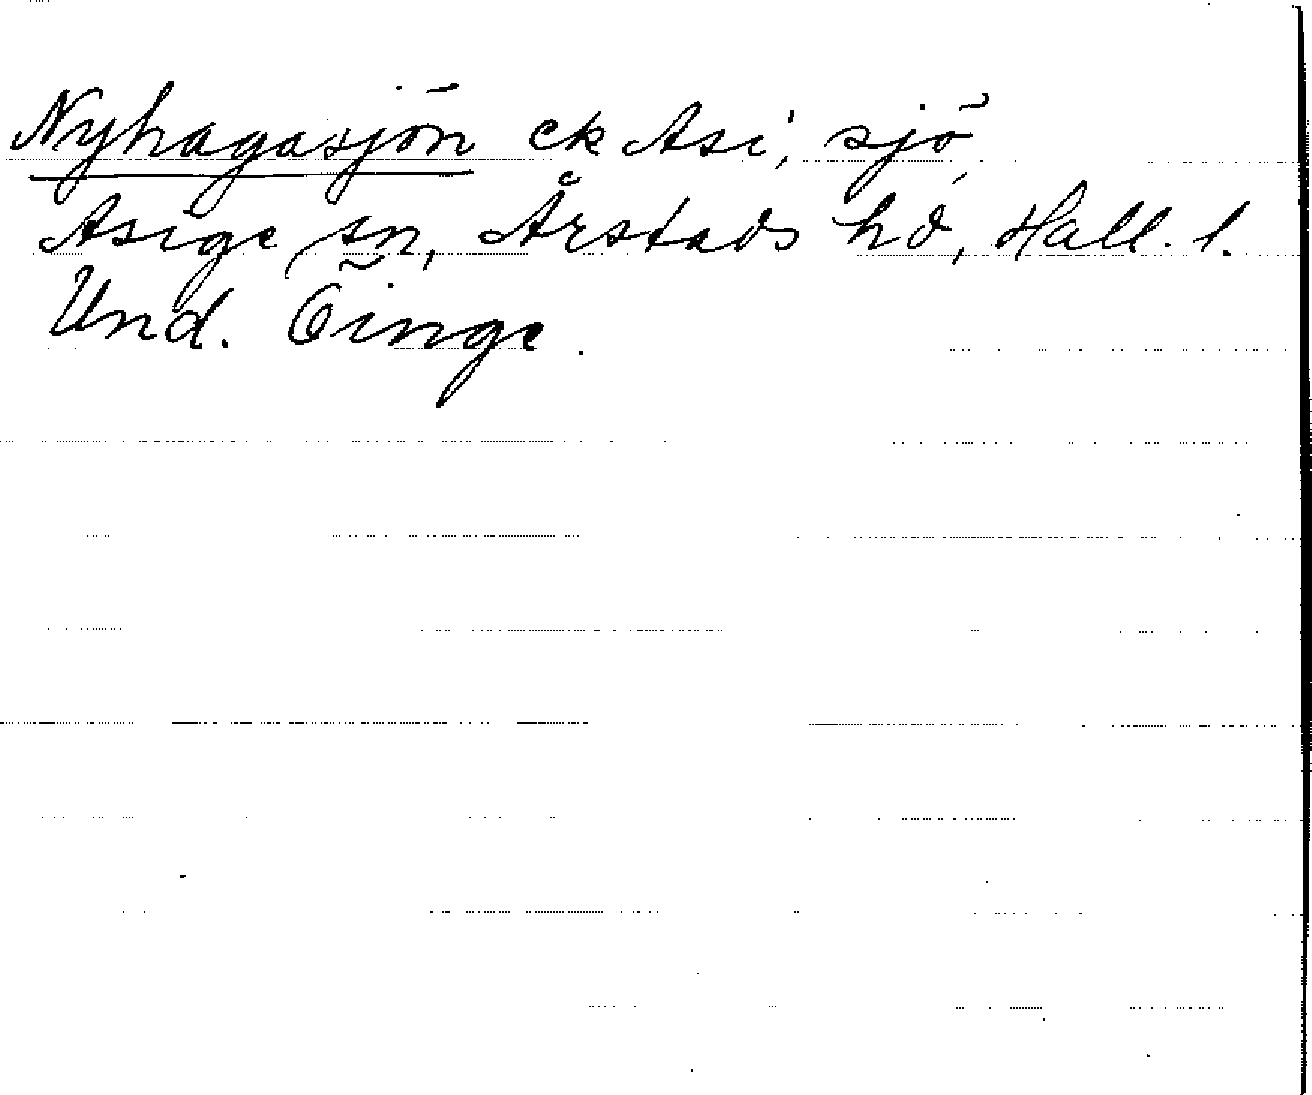 Nyhagasjön ek Asi; sjö,
Asige sn, Årstads hd, Hall. l.
Und. Öinge.